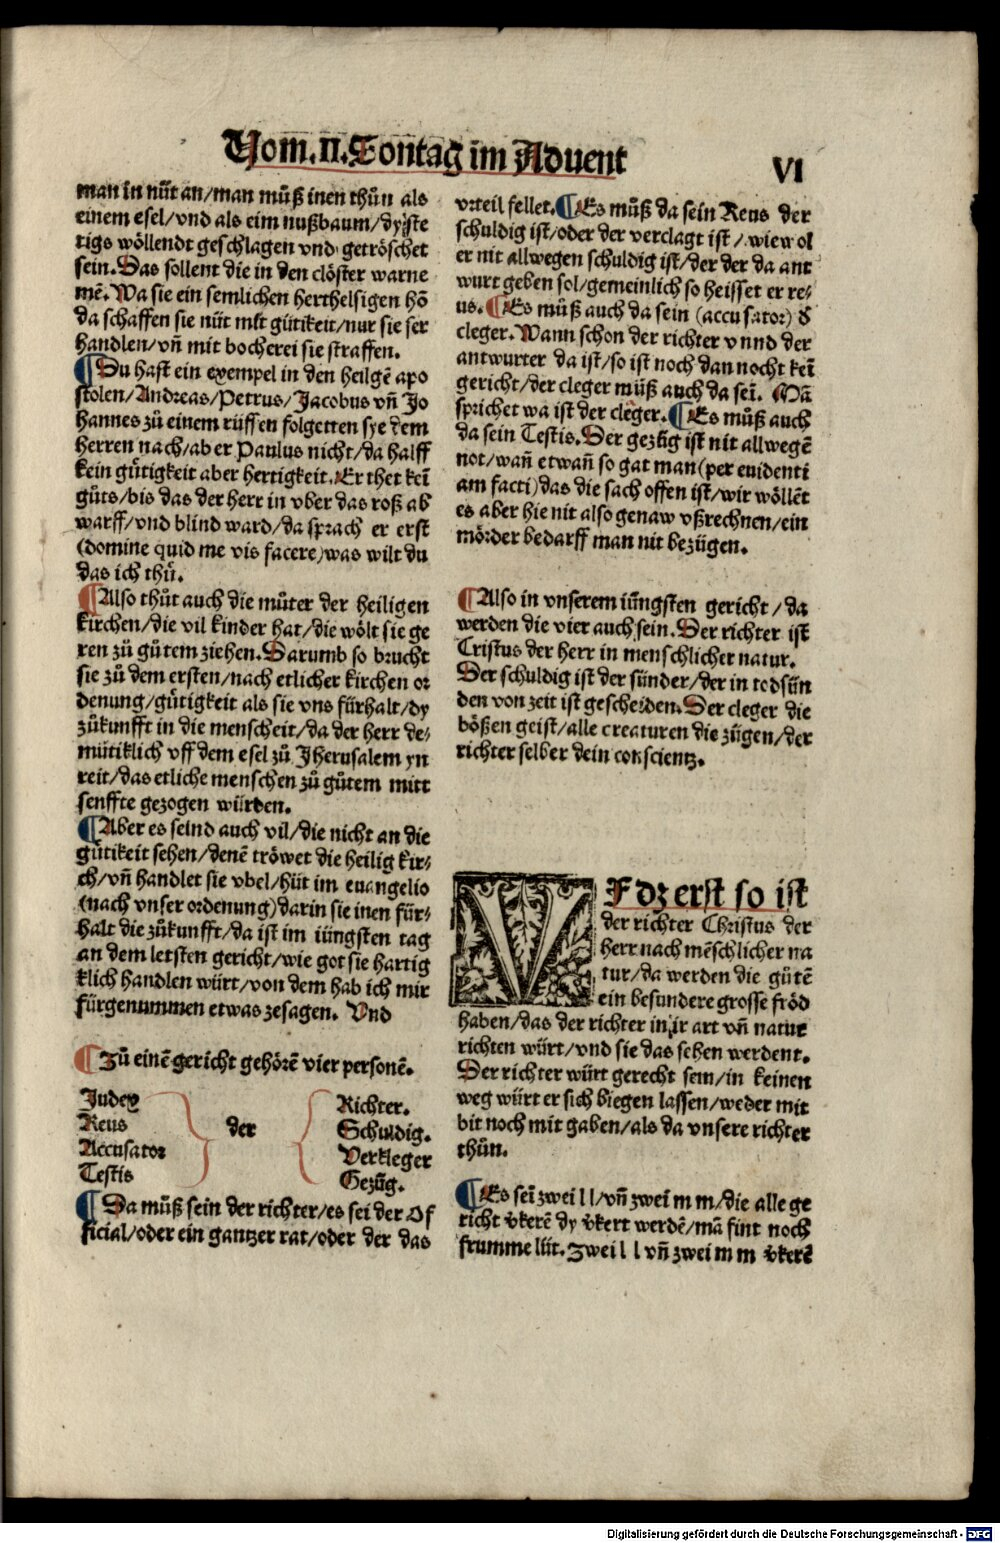 Vom.II.Sontag im Aduent
VI
man in nüt an/man müß inen thůn als
einem esel/vnd als eim nußbaum/dy ste
tigs wöllendt geschlagen vnd getröschet
sein. Das sollent die in den clöster warne
mē. Wa sie ein semlichen herthelsigen hō
da schaffen sie nüt mit gütikeit/nur sie ser
handlen/vñ mit bocherei sie straffen.
¶ Du hast ein exempel in den heilgē apo
stolen/Andreas/Petrus/Jacobus vñ Jo
hannes zů einem rüffen folgetten sye dem
herren nach/aber Paulus nicht/da halff
kein gütigkeit aber hertigkeit. Er thet keī
gůts/bis das der herr in vber das roß ab
warff/vnd blind ward/da sprach er erst
(domine quid me vis facere/was wilt du
das ich thů.
¶ Also thůt auch die můter der heiligen
kirchen/die vil kinder hat/die wölt sie ge
ren zů gůtem ziehen. Darumb so brucht
sie zů dem ersten/nach etlicher kirchen or
denung/gütigkeit als sie vns fürhalt/dy
zůkunfft in die menscheit/da der herr de⸗
mütiklich vff dem esel zů Jherusalem yn
reit/das etliche menschen zů gůtem mitt
senffte gezogen würden.
¶ Aber es seind auch vil/die nicht an die
gütikeit sehen/denē tröwet die heilig kir⸗
ch/vñ handlet sie vbel/hüt im euangelio
(nach vnser ordenung)darin sie inen für⸗
halt die zůkunfft/da ist im iüngsten tag
an dem letsten gericht/wie got sie hartig
klich handlen würt/von dem hab ich mir
fürgenummen etwas zesagen. Vnd
¶ Zů einē gericht gehörē vier personē.
Judex
Reus
Accusator
Testis
der
Richter.
Schuldig.
Verkleger
Gezüg.
¶ Da můß sein der richter/es sei der Of
ficial/oder ein gantzer rat/oder der das
vrteil fellet. ¶ Es můß da sein Reus der
schuldig ist/oder der verclagt ist/wiewol
er nit allwegen schuldig ist/der der da ant
wurt geben sol/gemeinlich so heisset er re⸗
us. ¶ Es můß auch da sein (accusator) d̕
cleger. Wann schon der richter vnnd der
antwurter da ist/so ist noch dan nocht keī
gericht/der cleger můß auch da seī. Mā
sprichet wa ist der cleger. ¶ Es můß auch
da sein Testis. Der gezüg ist nit allwegē
not/wañ etwañ so gat man(per euidenti
am facti)das die sach offen ist/wir wöllēt
es aber hie nit also genaw vßrechnen/ein
mörder bedarff man nit bezügen.
¶ Also in vnserem iüngsten gericht/da
werden die vier auch sein. Der richter ist
Cristus der herr in menschlicher natur.
Der schuldig ist der sünder/der in todsün
den von zeit ist gescheiden. Der cleger die
bößen geist/alle creaturen die zügen/der
richter selber dein conscientz.
VF dz erst so ist
der richter Christus der
herr nach mēschlicher na
tur/da werden die gůtē
ein besundere grosse fröd
haben/das der richter in ir art vñ natur
richten würt/vnd sie das sehen werdent.
Der richter würt gerecht sein/in keinen
weg würt er sich biegen lassen/weder mit
bit noch mit gaben/als da vnsere richter
thůn.
¶ Es seī zwei l l/vñ zwei m m/die alle ge
richt v̕kerē dy v̕kert werdē/mā fint noch
frumme lüt. Zwei l l vñ zwei m m v̕kerē
Digitalisierung gefördert durch die Deutsche Forschungsgemeinschaft - DFG